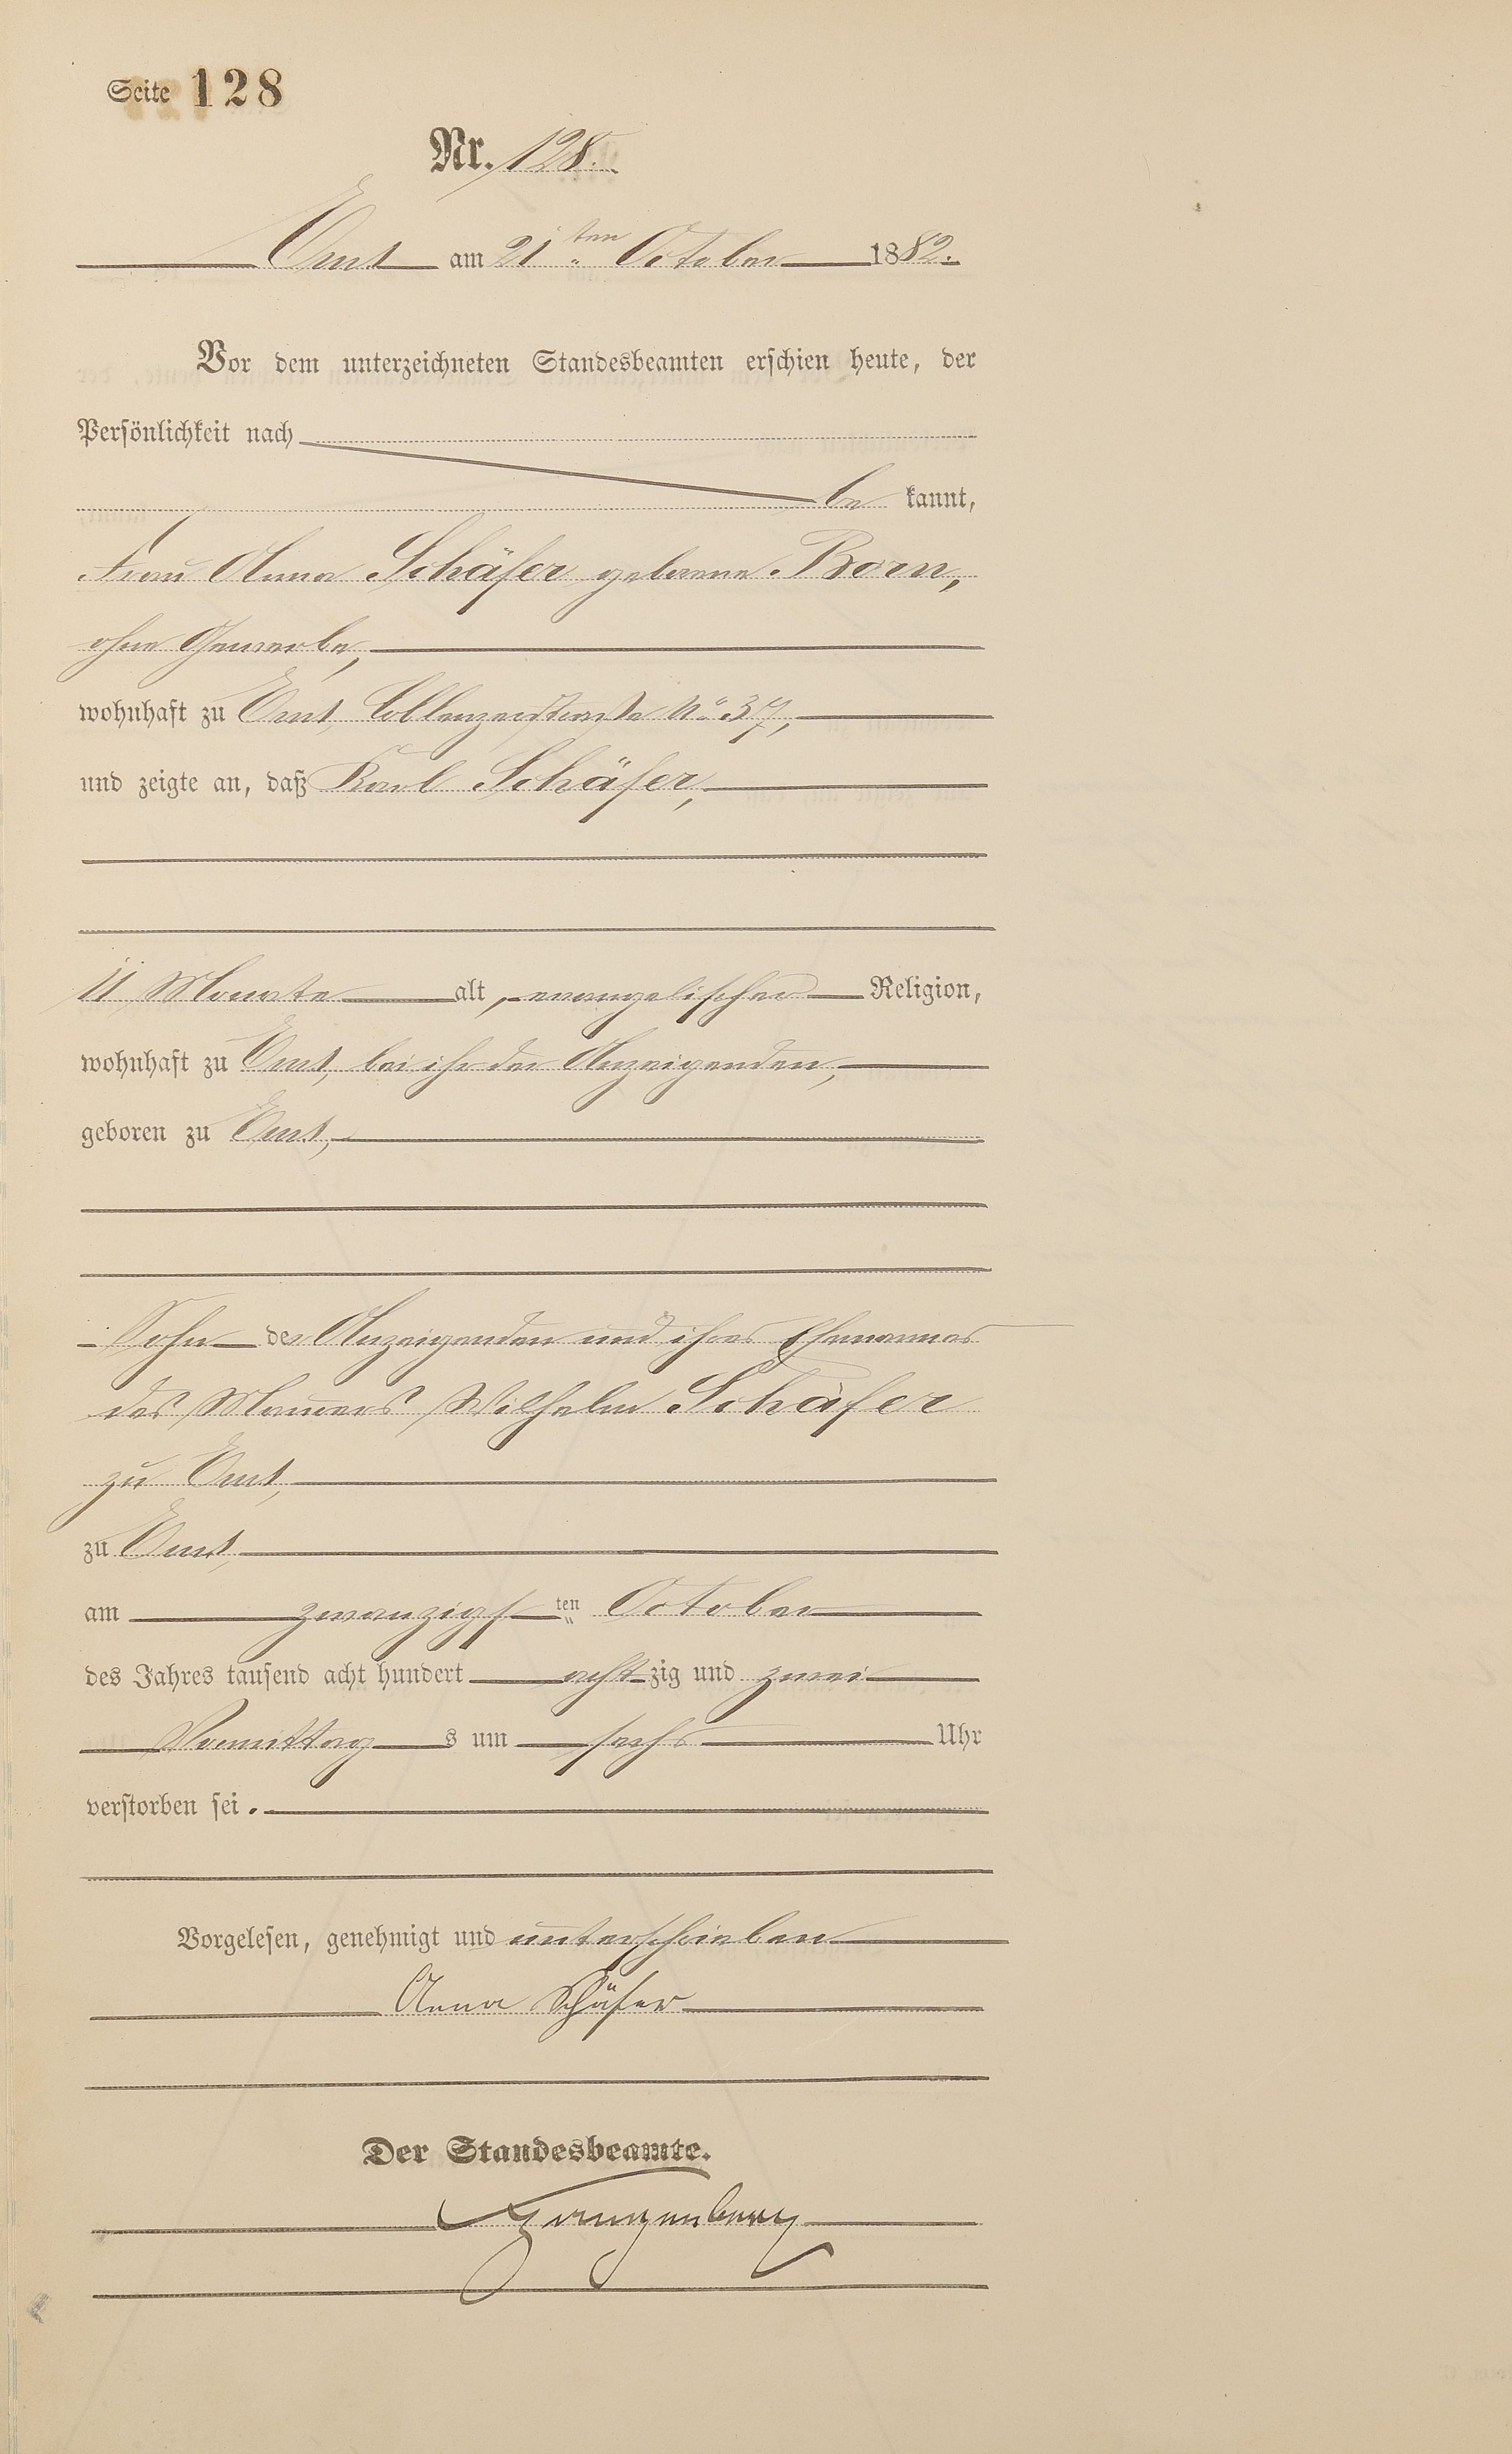 Seite 128
Nr. 128.
Ems am 21ten October 1882.
Vor dem unterzeichneten Standesbeamten erschien heute, der
Persönlichkeit nach
be kannt,
Frau Anna Schäfer geborene Born,
ohne Gewerbe,
wohnhaft zu Ems, Coblenzerstraße No 37,
und zeigte an, daß Karl Schäfer,
11 Monate alt, evangelischer Religion,
wohnhaft zu Ems, bei ihr der Anzeigenden,
geboren zu Ems,
Sohn der Anzeigenden und ihres Ehemannes
des Maurers Wilhelm Schäfer
zu Ems,
zu Ems,
am zwanzigsten October
des Jahres tausend acht hundert achtzig und zwei
Vormittags um sechs Uhr
verstorben sei.
Vorgelesen, genehmigt und unterschrieben
Anna Schäfer
Der Standesbeamte.